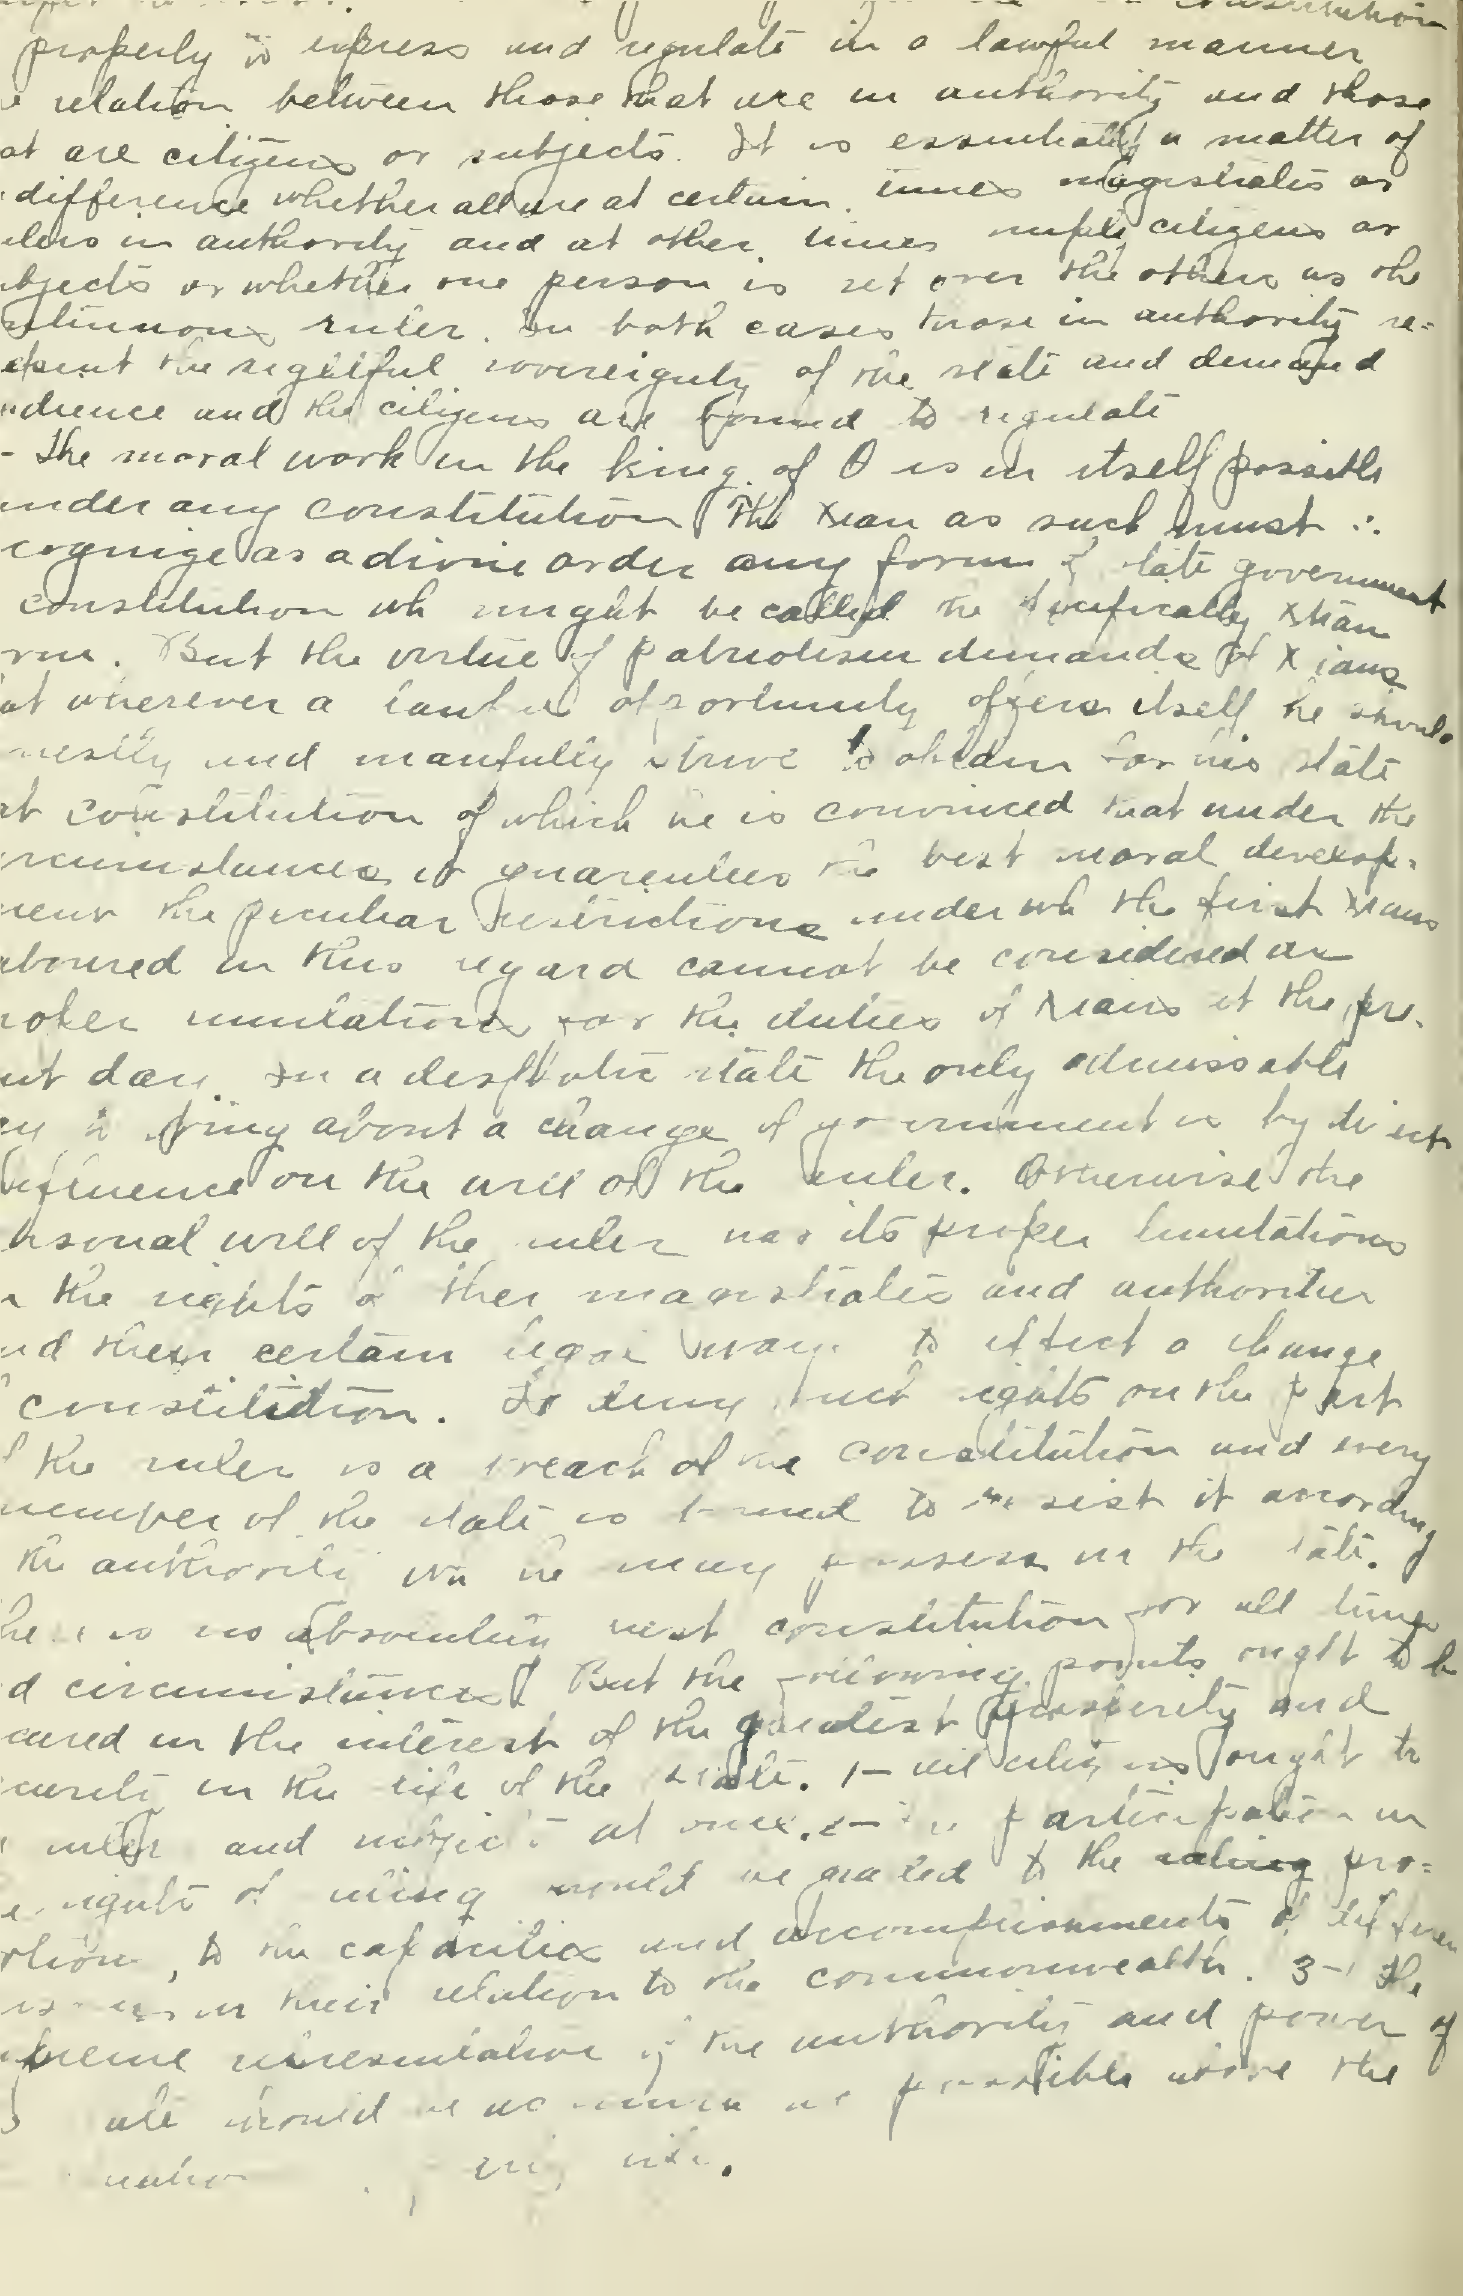 constitution
properly to express and regulate in a lawful manner
relation between those that are in authority and those
at are citizens or subjects. It is essentially a matter of
difference whether all are at certain times magistrates or
in authority and at other times citizens or
bjects or whether one person is set over the others as the
ntinuous ruler. In both cases those in authority re=
sent the rightful sovereignty of the state and demand
dience and the citizens are bound to regulate
- The moral work in the king. of θ is in itself possible
under any constitution The Xian as such must ∴
cognize as a divine order any form of state government
constitution wh might be called the specifically Xtian
rm. But the virtue of patriotism demands of Xians
at wherever a lawful opportunity offers itself he should
nestly and manfully strive to obtain for his state
at constitution of which he is convinced that under the
rcumstances it guarentees the best moral develop=
ment the peculiar restrictions under wh the first Xians
aboured in this regard cannot be considered as
roper limitations for the duties of Xians at the pre.
nt day In a despotic state the only admissable
ay to bring about a change of government is by direct
influence on the will of the ruler. Otherwise the
ersonal will of the ruler has its proper limitations
n the rights of other magistrates and authorities
nd then certain legal ways to effect a change
f constitution. To deny such rights on the part
f the ruler is a breach of the constitution and every
member of the state is bound to resist it according
the authority wh he may possess in the state.
here is no absolutely best constitution for all times
d circumstances. But the following points ought to be
cured in the interest of the greatest prosperity and
curity in the life of the state. 1- all citizens ought to
ruler and subject at once. 2- The participation in
e rights of ruling should be graded to the ruling pro=
rtion, to the capacities and accomplishments of different
in their relation to the commonwealth. 3- The
preme representative of the authority and power of
should be as much as possible above the